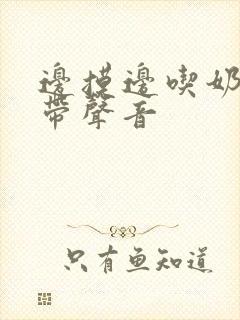 邊摸邊喫奶
帶聲音
只有魚知道